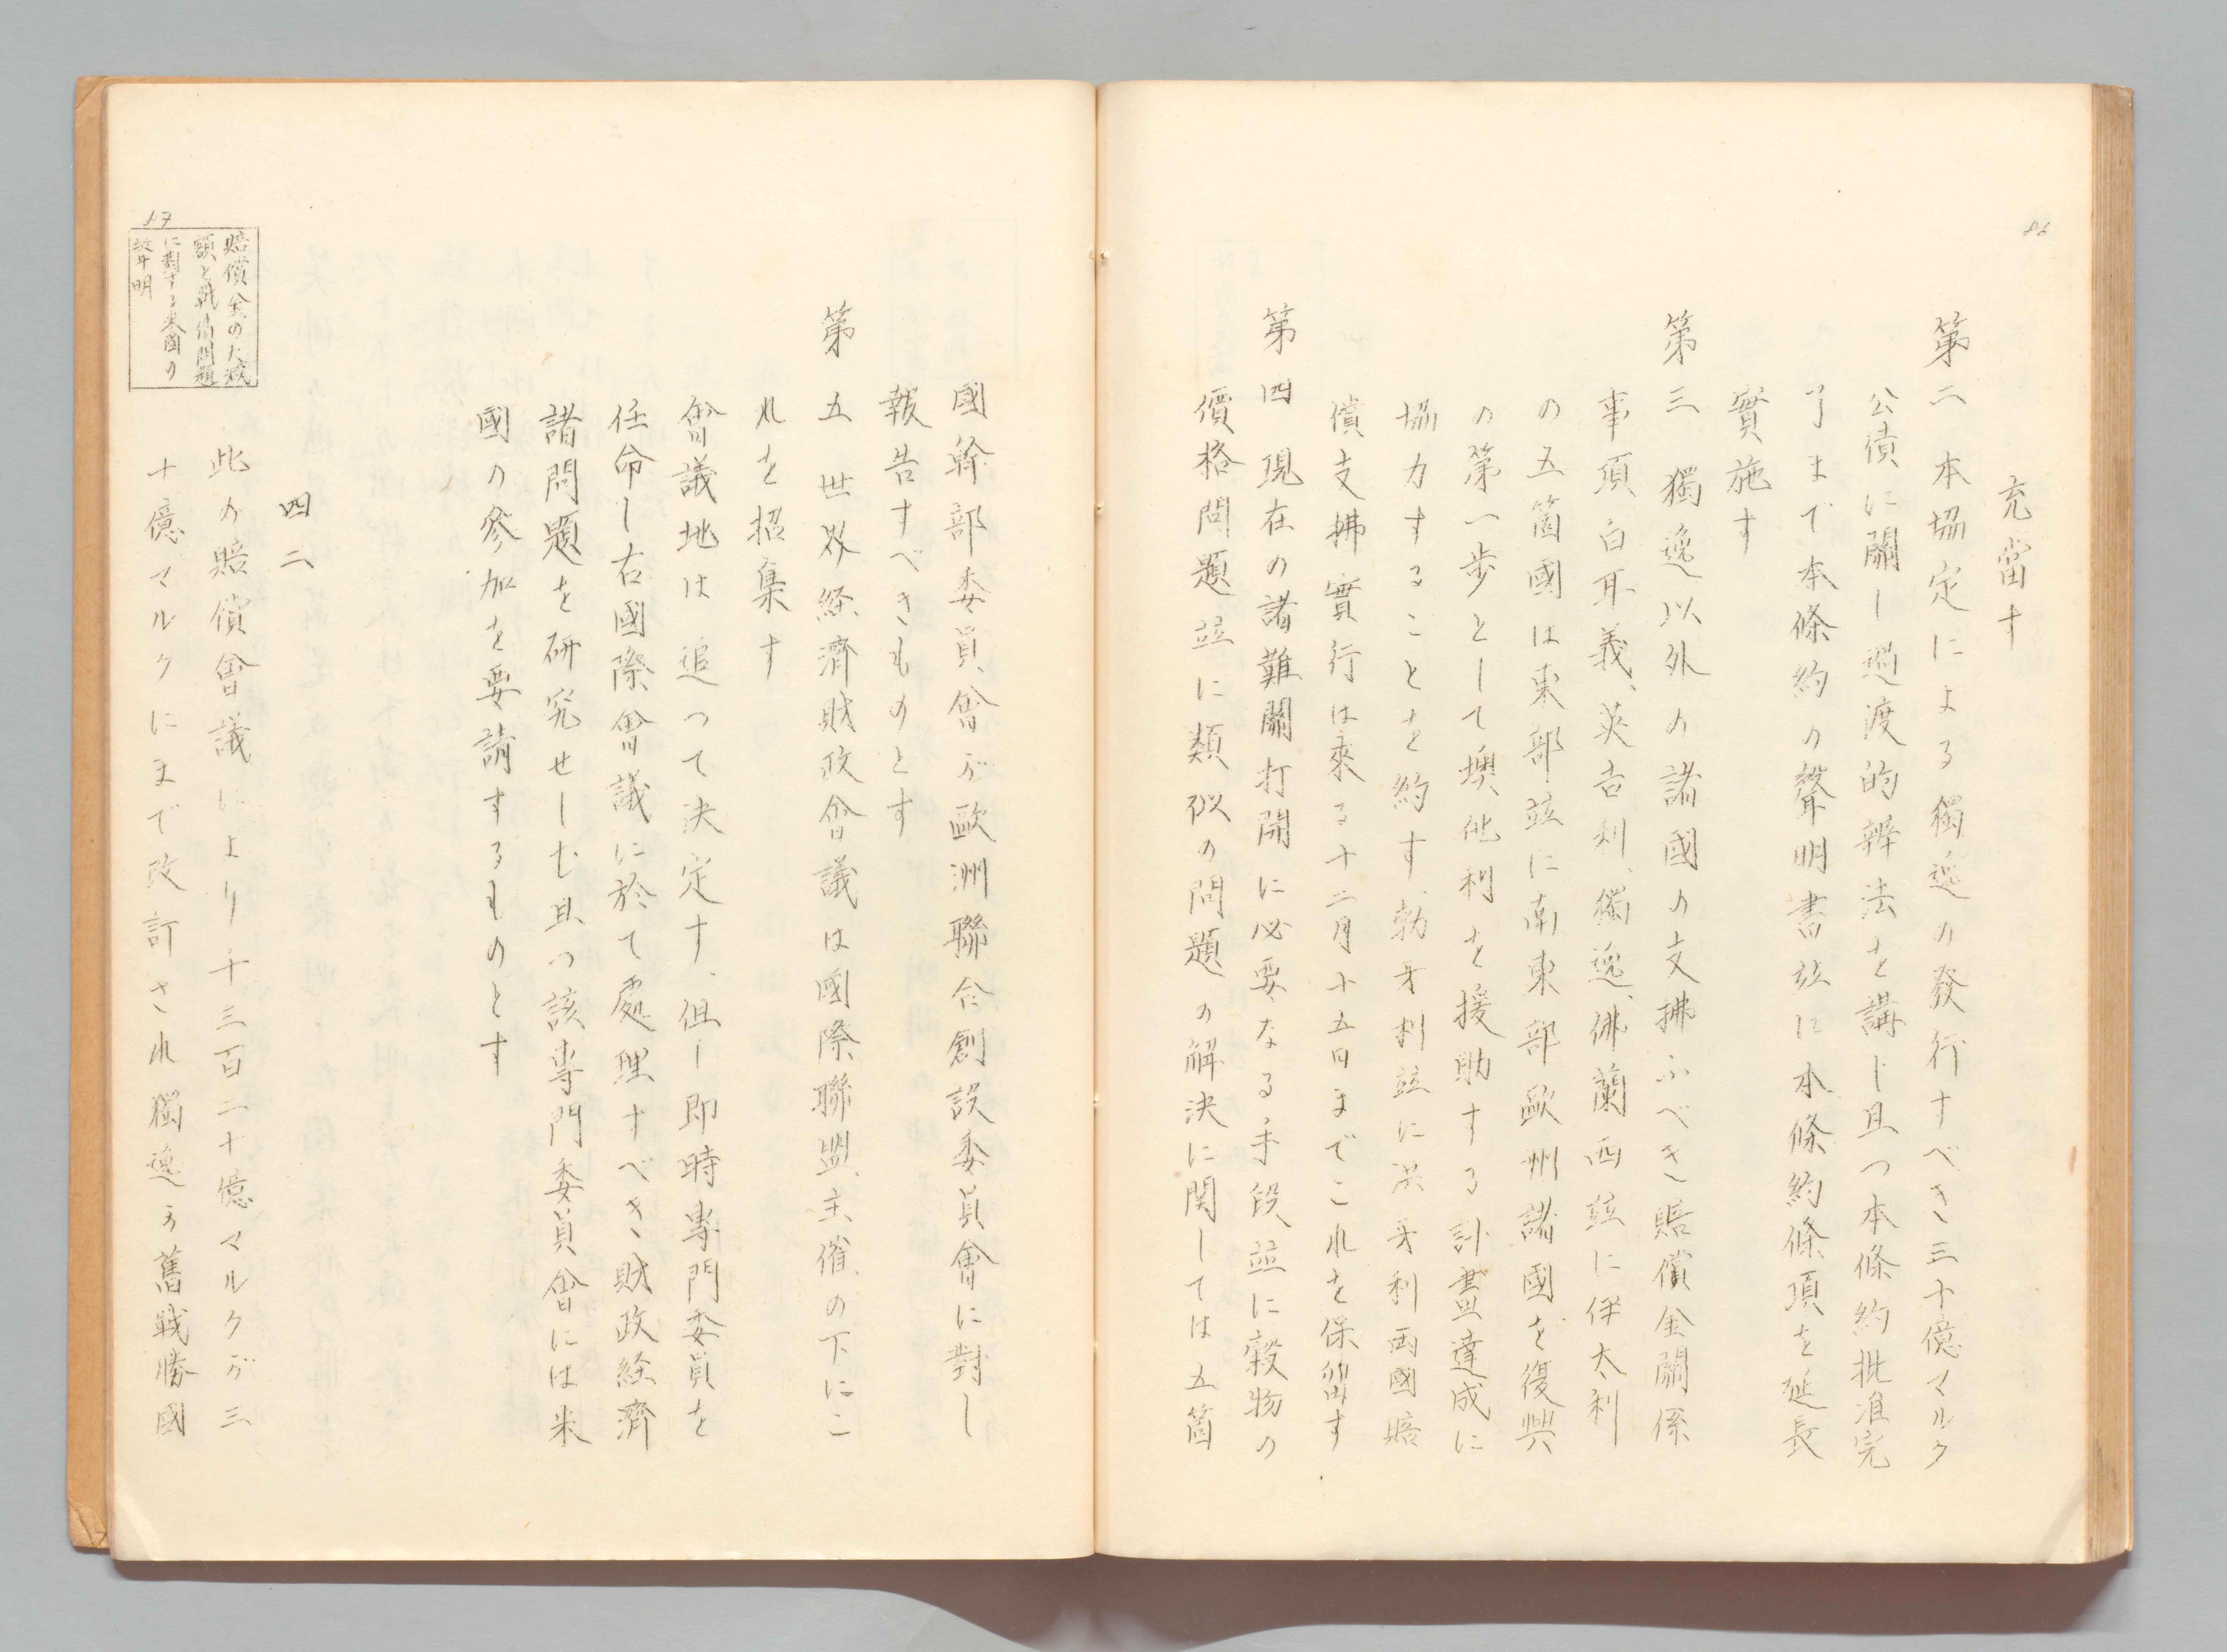 86
充當す
第二 本協定による獨逸の發行すべき三十億マルク
公債に關し過渡的辨法を講じ且つ本條約批准完
了まで本條約の聲明書竝に本條約條項を延長
實施す
第三 獨逸以外の諸國の支拂ふべき賠償金關係
事項白耳義、英吉利、獨逸、佛蘭西竝に伊太利
の五箇國は東部竝に南東部歐州諸國を復興
の第一歩として墺地利を援助する計畫達成に
協力することを約す、勃牙利竝に洪牙利両國賠
償支拂實行は來る十二月十五日までこれを保留す
第四 現在の諸難關打開に必要なる手段竝に穀物の
價格問題竝に類似の問題の解決に関しては五箇
國幹部委員會が歐洲聯合創設委員會に對し
報告すべきものとす
第五 世界経濟財政會議は國際聯盟主催の下にこ
れを招集す
會議地は追つて決定す、但し即時專門委員を
任命し右國際會議に於て處理すべき財政経濟
諸問題を研究せしむ且つ該專門委員會には米
國の參加を要請するものとす
四二
17
賠償金の大減
額と戰債問題
に對する米國の
聲明
此の賠償會議により千三百二十億マルクが三
十億マルクにまで改訂され獨逸が舊戦勝國